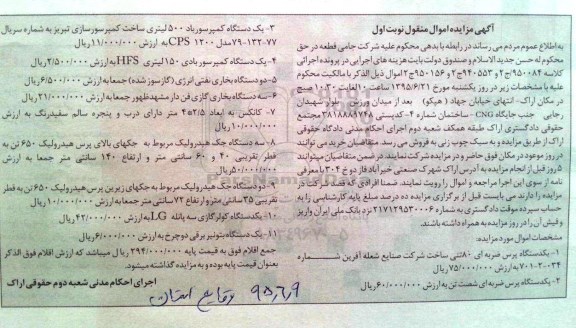 آگهی مزایده اموال منقول نوبت اول
به اطلاع عموم مردم می رساند در رابطه با بدهی محکوم علیه شرکت جامی قطعه در حق
محکوم له حسن جدید الاسلام و صندوق دولت بابت هزینه های اجرایی در پرونده اجرائی
کلاسه ۹۵۰۰۸۴/ج۲ و ۹۴۰۵۵۳/ج۲ و ۹۵۰۱۵۶/ج۲ اموال ذیل الذکر با مالکیت محکوم
علیه با مشخصات زیر در روز یکشنبه مورخ ۱۳۹۵/۶/۲۱ ساعت ۱۰ الی ۱۰:۳۰ صبح
در مکان اراک- انتهای خیابان جهاد (هپکو) بعد از میدان ورزین بلوار شهیدان
رجایی جنب جایگاه CNG - ساختمان شماره ۴- کدپستی ۳۸۱۸۸۸۹۷۴۸ مجتمع
حقوقی دادگستری اراک طبقه همکف شعبه دوم اجرای احکام مدنی دادگاه حقوقی
اراک از طریق مزایده و به سبک چوب زنی به فروش می رسد. متقاضیان خرید می توانند
در روز موعود در مکان فوق حاضر و در مزایده شرکت نمایند. در ضمن متقاضیان میتوانند
۵ روز قبل از انجام مزایده به آدرس اراک شهرک صنعتی خیرآباد فاز دوخ ۳۰۴ با معرفی
نامه از سوی این اجرا مراجعه و اموال را رویت نمایند. ضمنا افرادی که قصد شرکت در
مزایده را دارند می بایست قبل از برگزاری مزایده ده درصد مبلغ پایه کارشناسی را به
حساب سپرده موقت دادگستری به شماره ۲۱۷۱۲۹۵۳۰۰۰۶ نزد بانک ملی ایران واریز
و فیش آن را در روز مزایده به همراه داشته باشند.
مشخصات اموال مورد مزایده:
۱- یکدستگاه پرس ضربه ای ۸۰ تنی ساخت شرکت صنایع شعله آفرین به شماره
۷۰۱-۲۰۰-۳۴ به ارزش ۷۵/۰۰۰/۰۰۰ ریال
۲- یکدستگاه پرس ضربه ای شصت تن به ارزش ۶۰/۰۰۰/۰۰۰ ریال
۳- یک دستگاه کمپرسور باد ۵۰۰ لیتری ساخت کمپرسورسازی تبریز به شماره سریال
۷۹-۱۳۲-۷۷ مدل CPS ۱۲۰۰ به ارزش ۱۱/۰۰۰/۰۰۰ ریال
۴- یک دستگاه کمپرسور بادی ۱۵۰ لیتری HFS به ارزش ۲/۵۰۰/۰۰۰ ریال
۵- دو دستگاه بخاری نفتی انرژی (گازسوز شده) جمعا به ارزش ۶/۵۰۰/۰۰۰ ریال
۶- سه دستگاه بخاری گازی فن دار مشهد ظهور جمعا به ارزش ۲۱/۰۰۰/۰۰۰ ریال
۷- کانکس به ابعاد ۲/۵*۴ متر دارای درب و پنجره سالم سفیدرنگ به ارزش
۱۰/۰۰۰/۰۰۰ ریال
۸- سه دستگاه جک هیدرولیک مربوط به جکهای بالای پرس هیدرولیک ۶۵۰ تن به
قطر تقریبی ۴۰ و ۶۰ سانتی متر و ارتفاع ۱۴۰ سانتی متر جمعا به ارزش
۵۰/۰۰۰/۰۰۰ ریال
۹- دو دستگاه جک هیدرولیک مربوط به جکهای زیرین پرس هیدرولیک ۶۵۰ تن به قطر
تقریبی ۳۵ سانتی متر و ارتفاع ۷۲ سانتی متر جمعا به ارزش ۱۰/۰۰۰/۰۰۰ ریال
۱۰- یکدستگاه کولر گازی سه پانله LG به ارزش ۴۲/۰۰۰/۰۰۰ ریال
۱۱- یک دستگاه بتونیر برقی دو چرخ به ارزش ۶/۰۰۰/۰۰۰ ریال
جمع اقلام فوق به قیمت پایه ۲۹۴/۰۰۰/۰۰۰ ریال میباشد که ارزش اقلام فوق الذکر
بعنوان قیمت پایه بوده و به مزایده گذاشته میشود.
اجرای احکام مدنی شعبه دوم حقوقی اراک
۹۵/۶/۹ وقایع استان